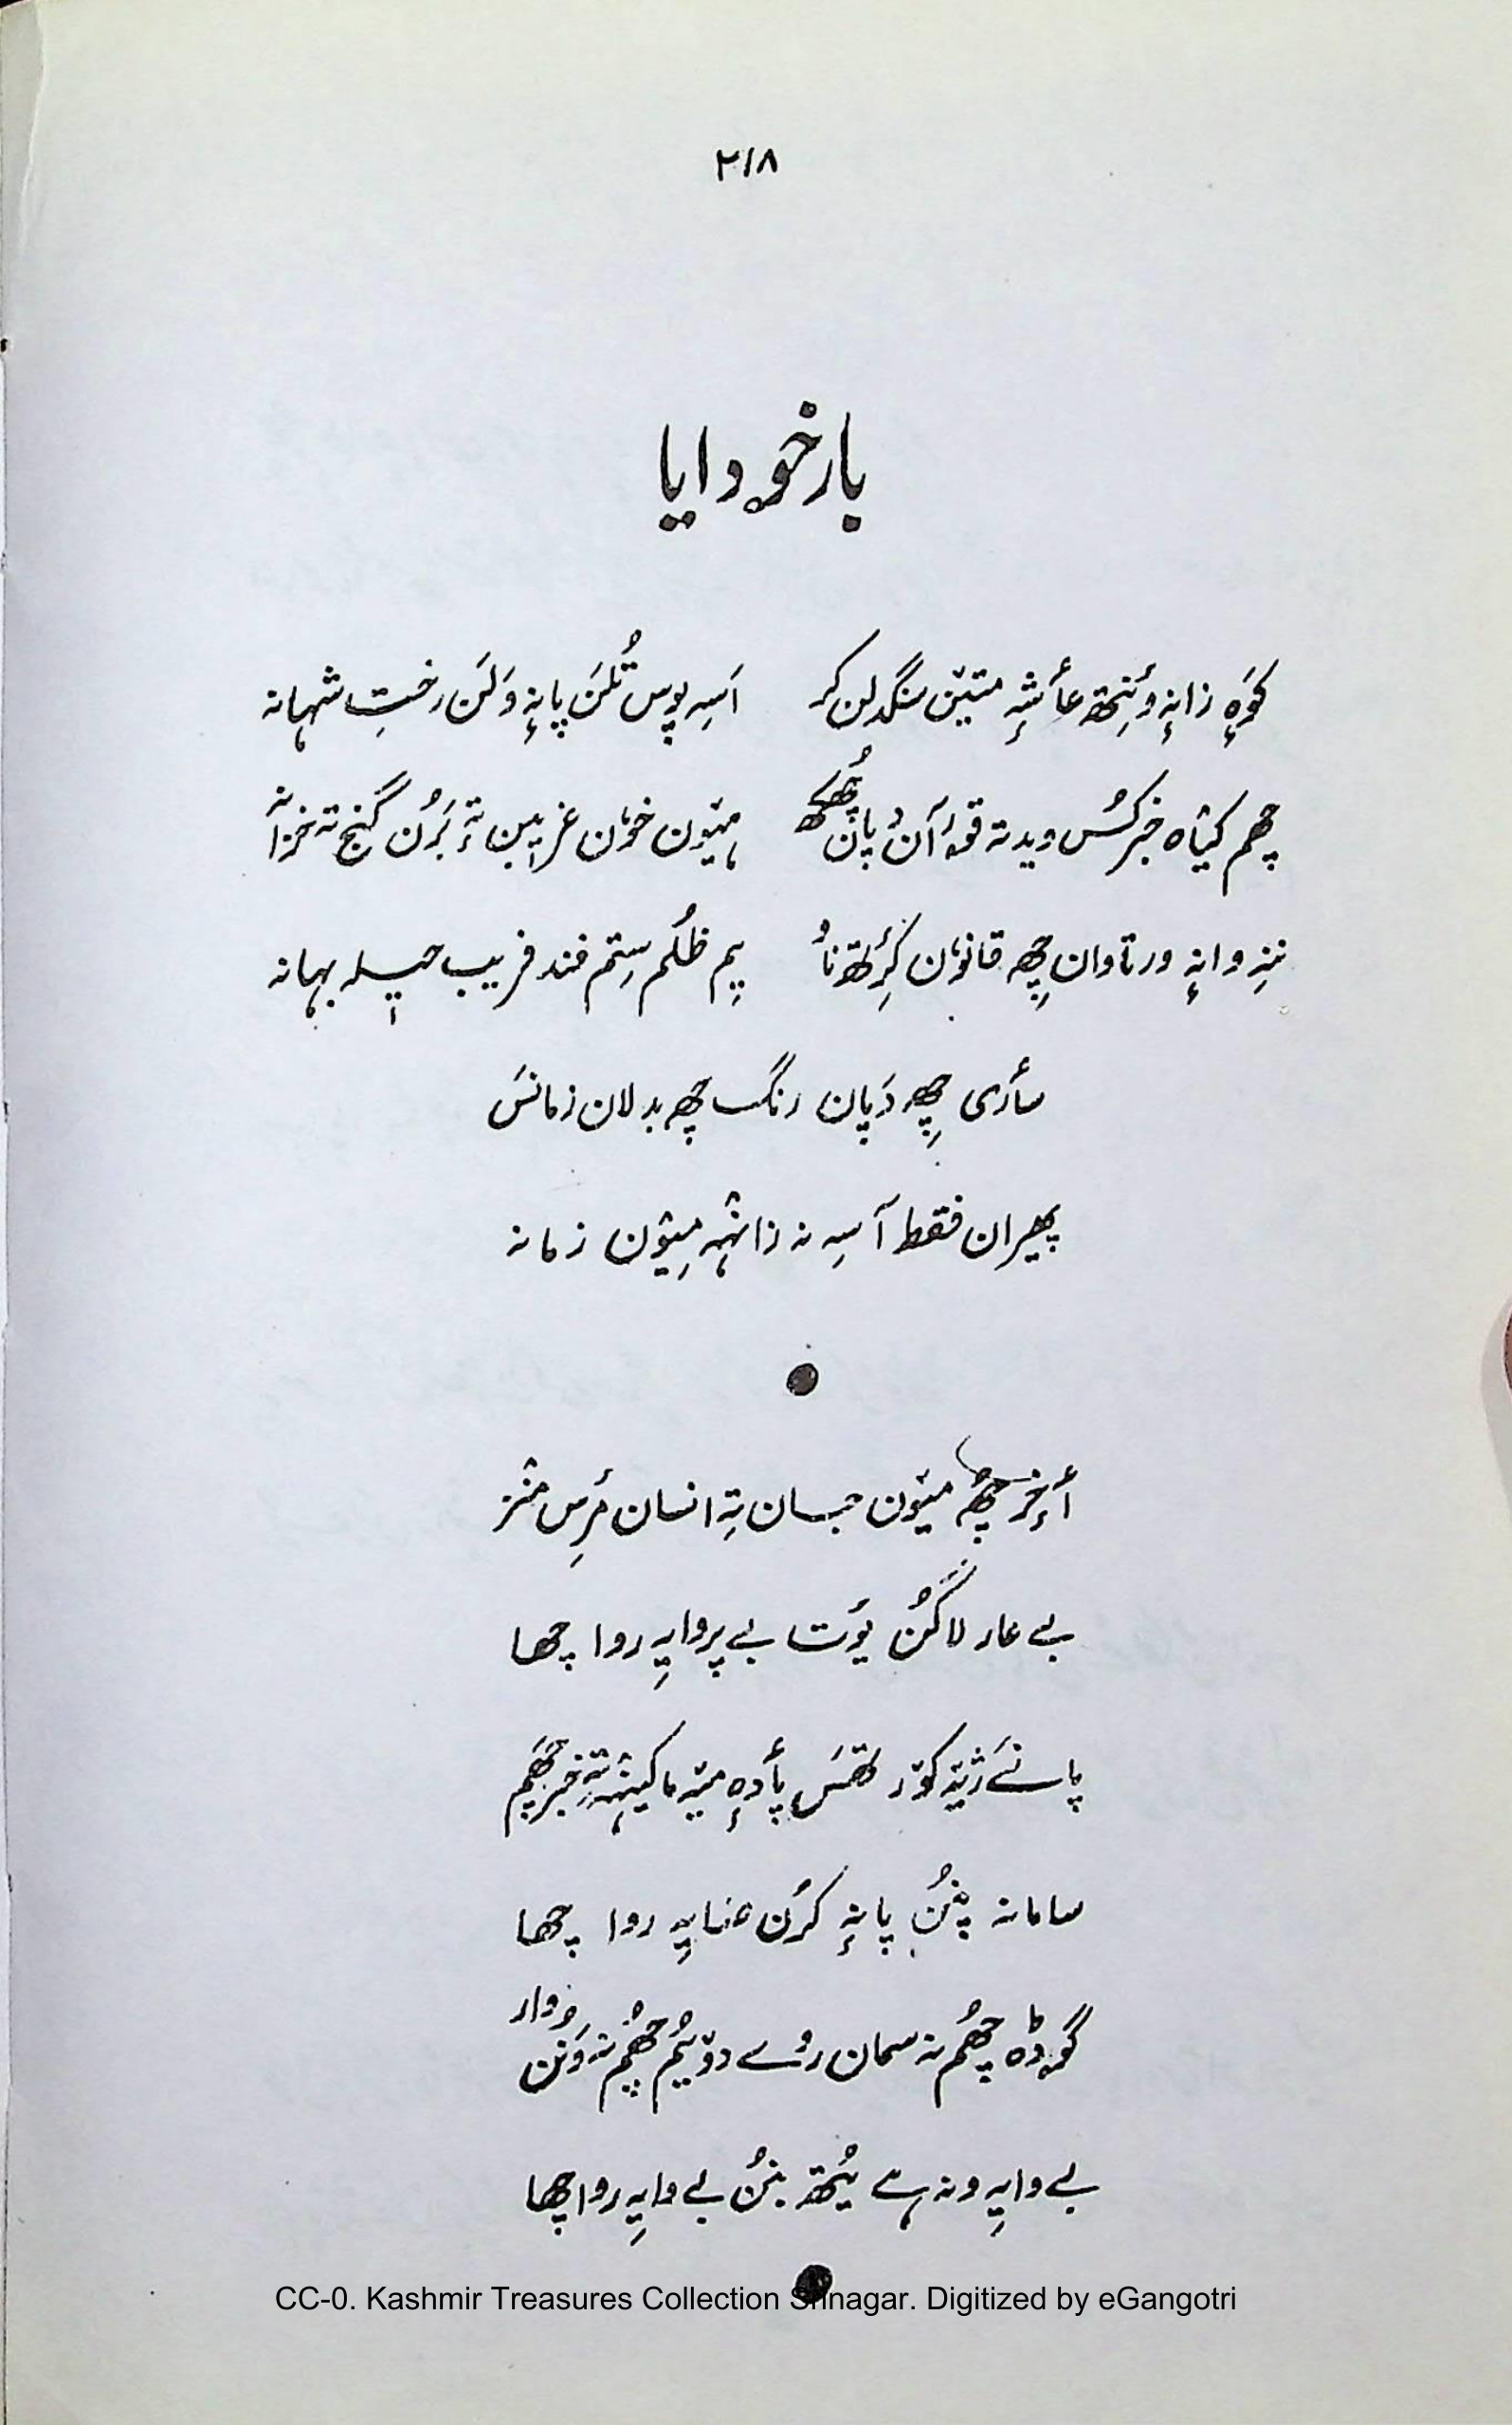 ۲۱۸
بارخۄدایا
کَوَہٕ زانہٕ وُنِتھ عٲشہِ متیٚن سنگدلن کر    اَسہِ پوس تُلَن پانہٕ وَلَن رختِ شہانہ
چھم کیٛاہ خبر کُس وید تہ قۄرآن پران چھُکھ    ہیٚتون خوٗن غریبن تہٕ بَرُن گنج تہ خزانہ
ننہِ وانہٕ ورتاوان چھِ قانوٗن کٔرِتھ نٲو    یِم ظُلم سِتم فند فریب حیلہ بہانہ
سٲری چھِ دَپان رنگ چھ بدلان زمانَس
پھیران فقط آسہِ نہ زانٛہہ میٛون زمانہ
●
ٲخٕر چھُہ میٛون جسان تہِ انسان مٔرِس منٛز
بے عار لاگُن یُوت بے پروایہِ روا چھا
پانے ژیتہٕ کوٚر تھَس پٲدہٕ میٚتہ ما کینٛہہ تہِ خبر چھَم
سامانہ پنُن پانہٕ کرُن ضایہِ روا چھا
گۄڈہ چھُم نہ سمان روے دوٚیُم چھُم نہ وَنُن وار
بے وایہِ ونہ ہے یُتھ بنُن بے وایہِ روا چھا
●
CC-0. Kashmir Treasures Collection Srinagar. Digitized by eGangotri